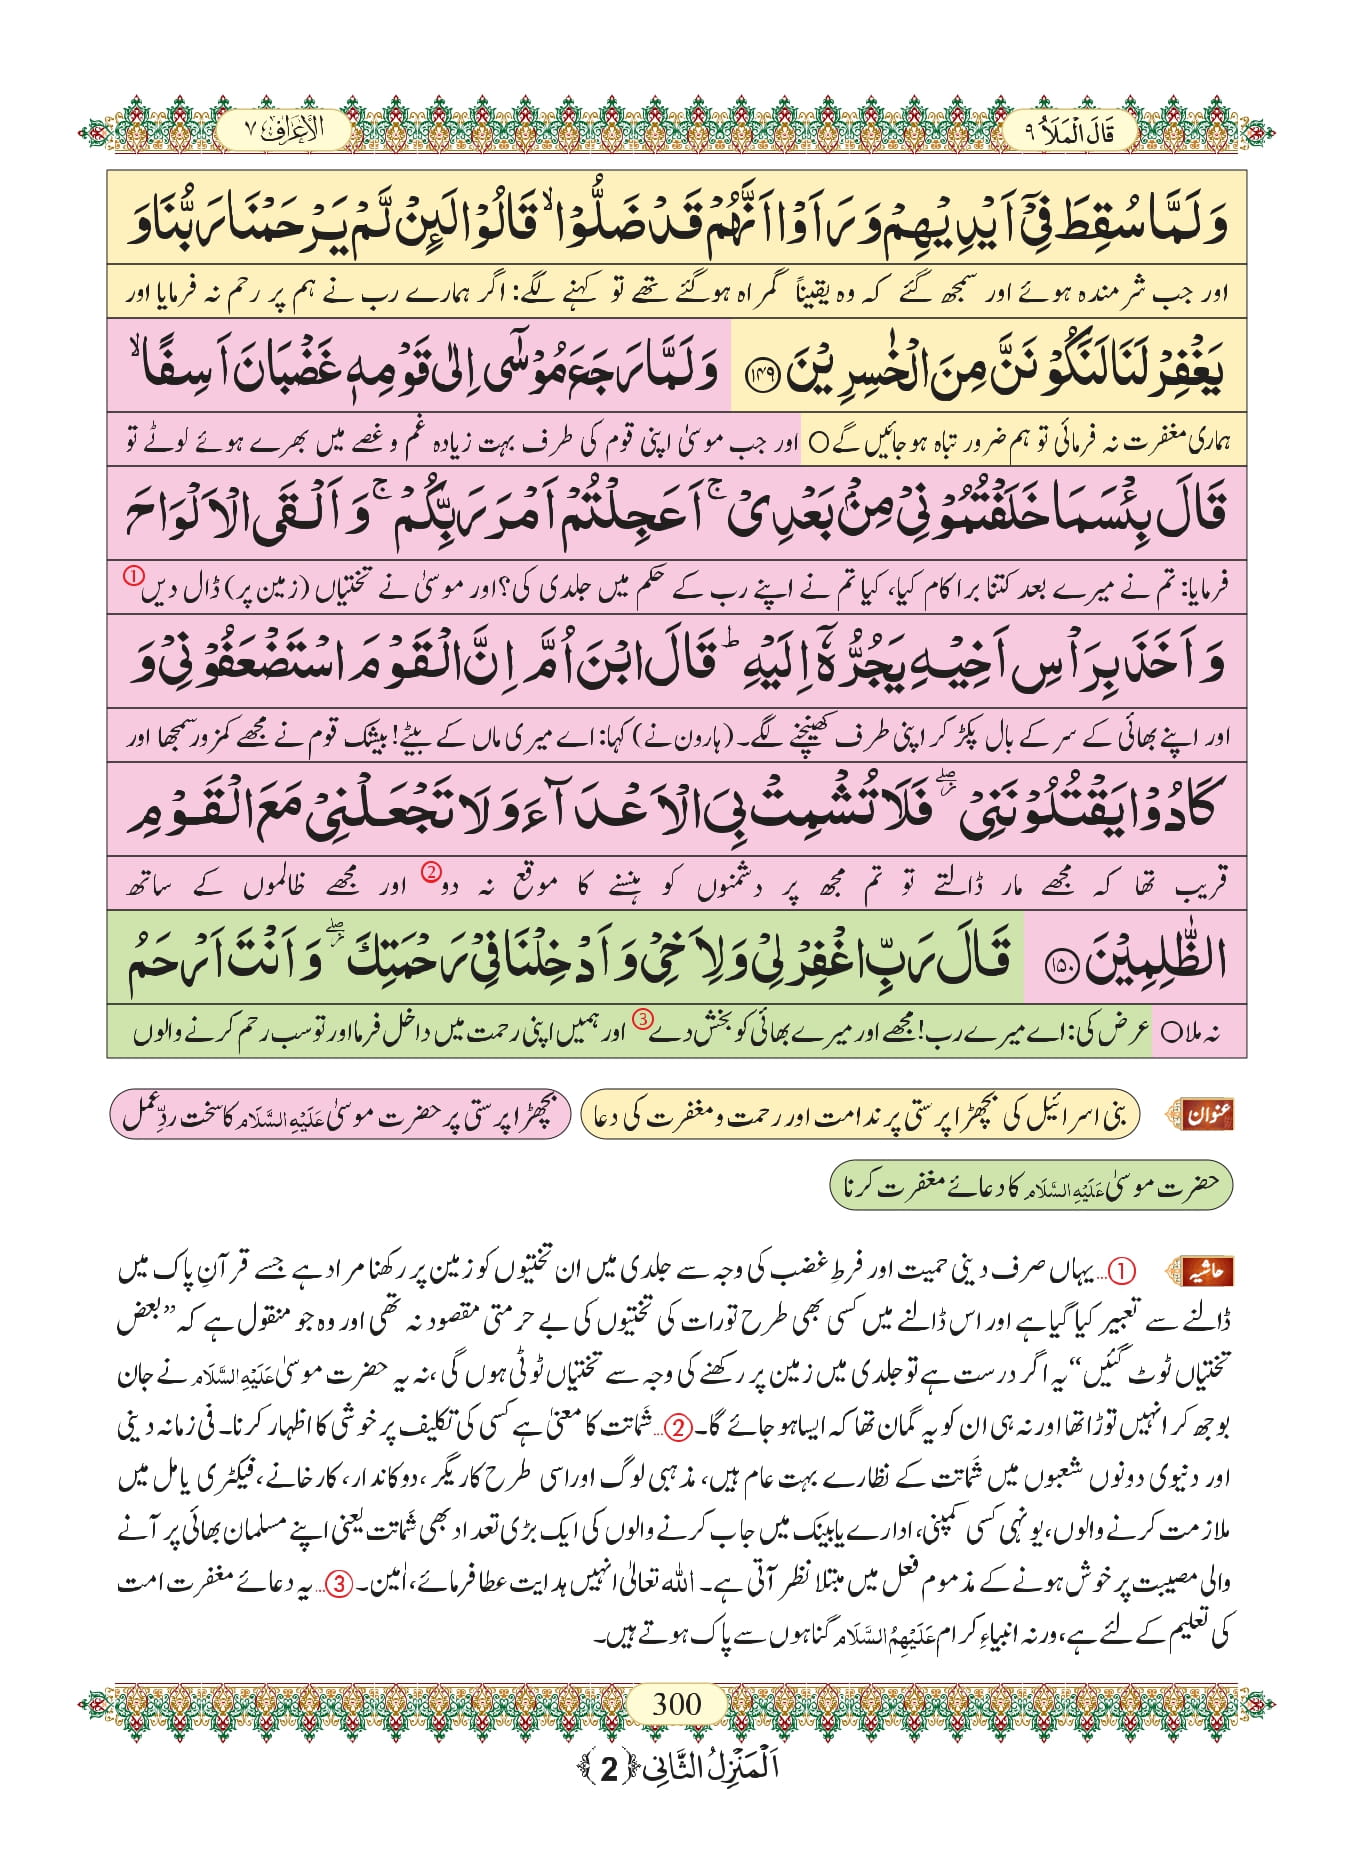 قَالَ الْمَلَاُ ٩
الْاَعْرَاف ٧
وَلَمَّا سُقِطَ فِیْۤ اَیْدِیْهِمْ وَرَاَوْا اَنَّهُمْ قَدْ ضَلُّوْاۙ قَالُوْا لَىِٕنْ لَّمْ یَرْحَمْنَا رَبُّنَا وَ
اور جب شرمندہ ہوئے اور سمجھ گئے کہ وہ یقیناً گمراہ ہوگئے تھے تو کہنے لگے: اگر ہمارے رب نے ہم پر رحم نہ فرمایا اور
یَغْفِرْ لَنَا لَنَكُوْنَنَّ مِنَ الْخٰسِرِیْنَ ﴿۱۴۹﴾ وَلَمَّا رَجَعَ مُوْسٰۤى اِلٰى قَوْمِهٖ غَضْبَانَ اَسِفًاۙ
ہماری مغفرت نہ فرمائی تو ہم ضرور تباہ ہوجائیں گے○ اور جب موسیٰ اپنی قوم کی طرف بہت زیادہ غم و غصے میں بھرے ہوئے لوٹے تو
قَالَ بِئْسَمَا خَلَفْتُمُوْنِیْ مِنْۢ بَعْدِیْۚ اَعَجِلْتُمْ اَمْرَ رَبِّكُمْۚ وَاَلْقَى الْاَلْوَاحَ
فرمایا: تم نے میرے بعد کتنا برا کام کیا، کیا تم نے اپنے رب کے حکم میں جلدی کی؟ اور موسیٰ نے تختیاں (زمین پر) ڈال دیں①
وَاَخَذَ بِرَاْسِ اَخِیْهِ یَجُرُّهٗۤ اِلَیْهِؕ قَالَ ابْنَ اُمَّ اِنَّ الْقَوْمَ اسْتَضْعَفُوْنِیْ وَ
اور اپنے بھائی کے سر کے بال پکڑ کر اپنی طرف کھینچنے لگے۔ (ہارون نے) کہا: اے میری ماں کے بیٹے! بیشک قوم نے مجھے کمزور سمجھا اور
كَادُوْا یَقْتُلُوْنَنِیْ ۖ٘ فَلَا تُشْمِتْ بِیَ الْاَعْدَآءَ وَلَا تَجْعَلْنِیْ مَعَ الْقَوْمِ
قریب تھا کہ مجھے مار ڈالتے تو تم مجھ پر دشمنوں کو ہنسنے کا موقع نہ دو② اور مجھے ظالموں کے ساتھ
الظّٰلِمِیْنَ ﴿۱۵۰﴾ قَالَ رَبِّ اغْفِرْ لِیْ وَلِاَخِیْ وَاَدْخِلْنَا فِیْ رَحْمَتِكَ ۖ٘ وَاَنْتَ اَرْحَمُ
نہ ملا○ عرض کی: اے میرے رب! مجھے اور میرے بھائی کو بخش دے③ اور ہمیں اپنی رحمت میں داخل فرما اور تو سب رحم کرنے والوں
عنوان بنی اسرائیل کی بچھڑا پرستی پر ندامت اور رحمت و مغفرت کی دعا بچھڑا پرستی پر حضرت موسیٰ عَلَیْهِ السَّلَام کا سخت ردِّ عمل
حضرت موسیٰ عَلَیْهِ السَّلَام کا دعائے مغفرت کرنا
حاشیہ ①… یہاں صرف دینی حمیت اور فرطِ غضب کی وجہ سے جلدی میں ان تختیوں کو زمین پر رکھنا مراد ہے جسے قرآنِ پاک میں
ڈالنے سے تعبیر کیا گیا ہے اور اس ڈالنے میں کسی بھی طرح تورات کی تختیوں کی بے حرمتی مقصود نہ تھی اور وہ جو منقول ہے کہ ”بعض
تختیاں ٹوٹ گئیں“ یہ اگر درست ہے تو جلدی میں زمین پر رکھنے کی وجہ سے تختیاں ٹوٹی ہوں گی، نہ یہ حضرت موسیٰ عَلَیْهِ السَّلَام نے جان
بوجھ کر انہیں توڑا تھا اور نہ ہی ان کو یہ گمان تھا کہ ایسا ہو جائے گا۔②… شَماتَت کا معنیٰ ہے کسی کی تکلیف پر خوشی کا اظہار کرنا۔ فی زمانہ دینی
اور دنیوی دونوں شعبوں میں شَماتَت کے نظارے بہت عام ہیں، مذہبی لوگ اور اسی طرح کاریگر، دوکاندار، کارخانے، فیکٹری یا مل میں
ملازمت کرنے والوں، یونہی کسی کمپنی، ادارے یا بینک میں جاب کرنے والوں کی ایک بڑی تعداد بھی شَماتَت یعنی اپنے مسلمان بھائی پر آنے
والی مصیبت پر خوش ہونے کے مذموم فعل میں مبتلا نظر آتی ہے۔ اللہ تعالیٰ انہیں ہدایت عطا فرمائے، اٰمین۔③… یہ دعائے مغفرت امت
کی تعلیم کے لئے ہے، ورنہ انبیاءِ کرام عَلَیْهِمُ السَّلَام گناہوں سے پاک ہوتے ہیں۔
300
اَلْمَنْزِلُ الثَّانِی ﴿2﴾